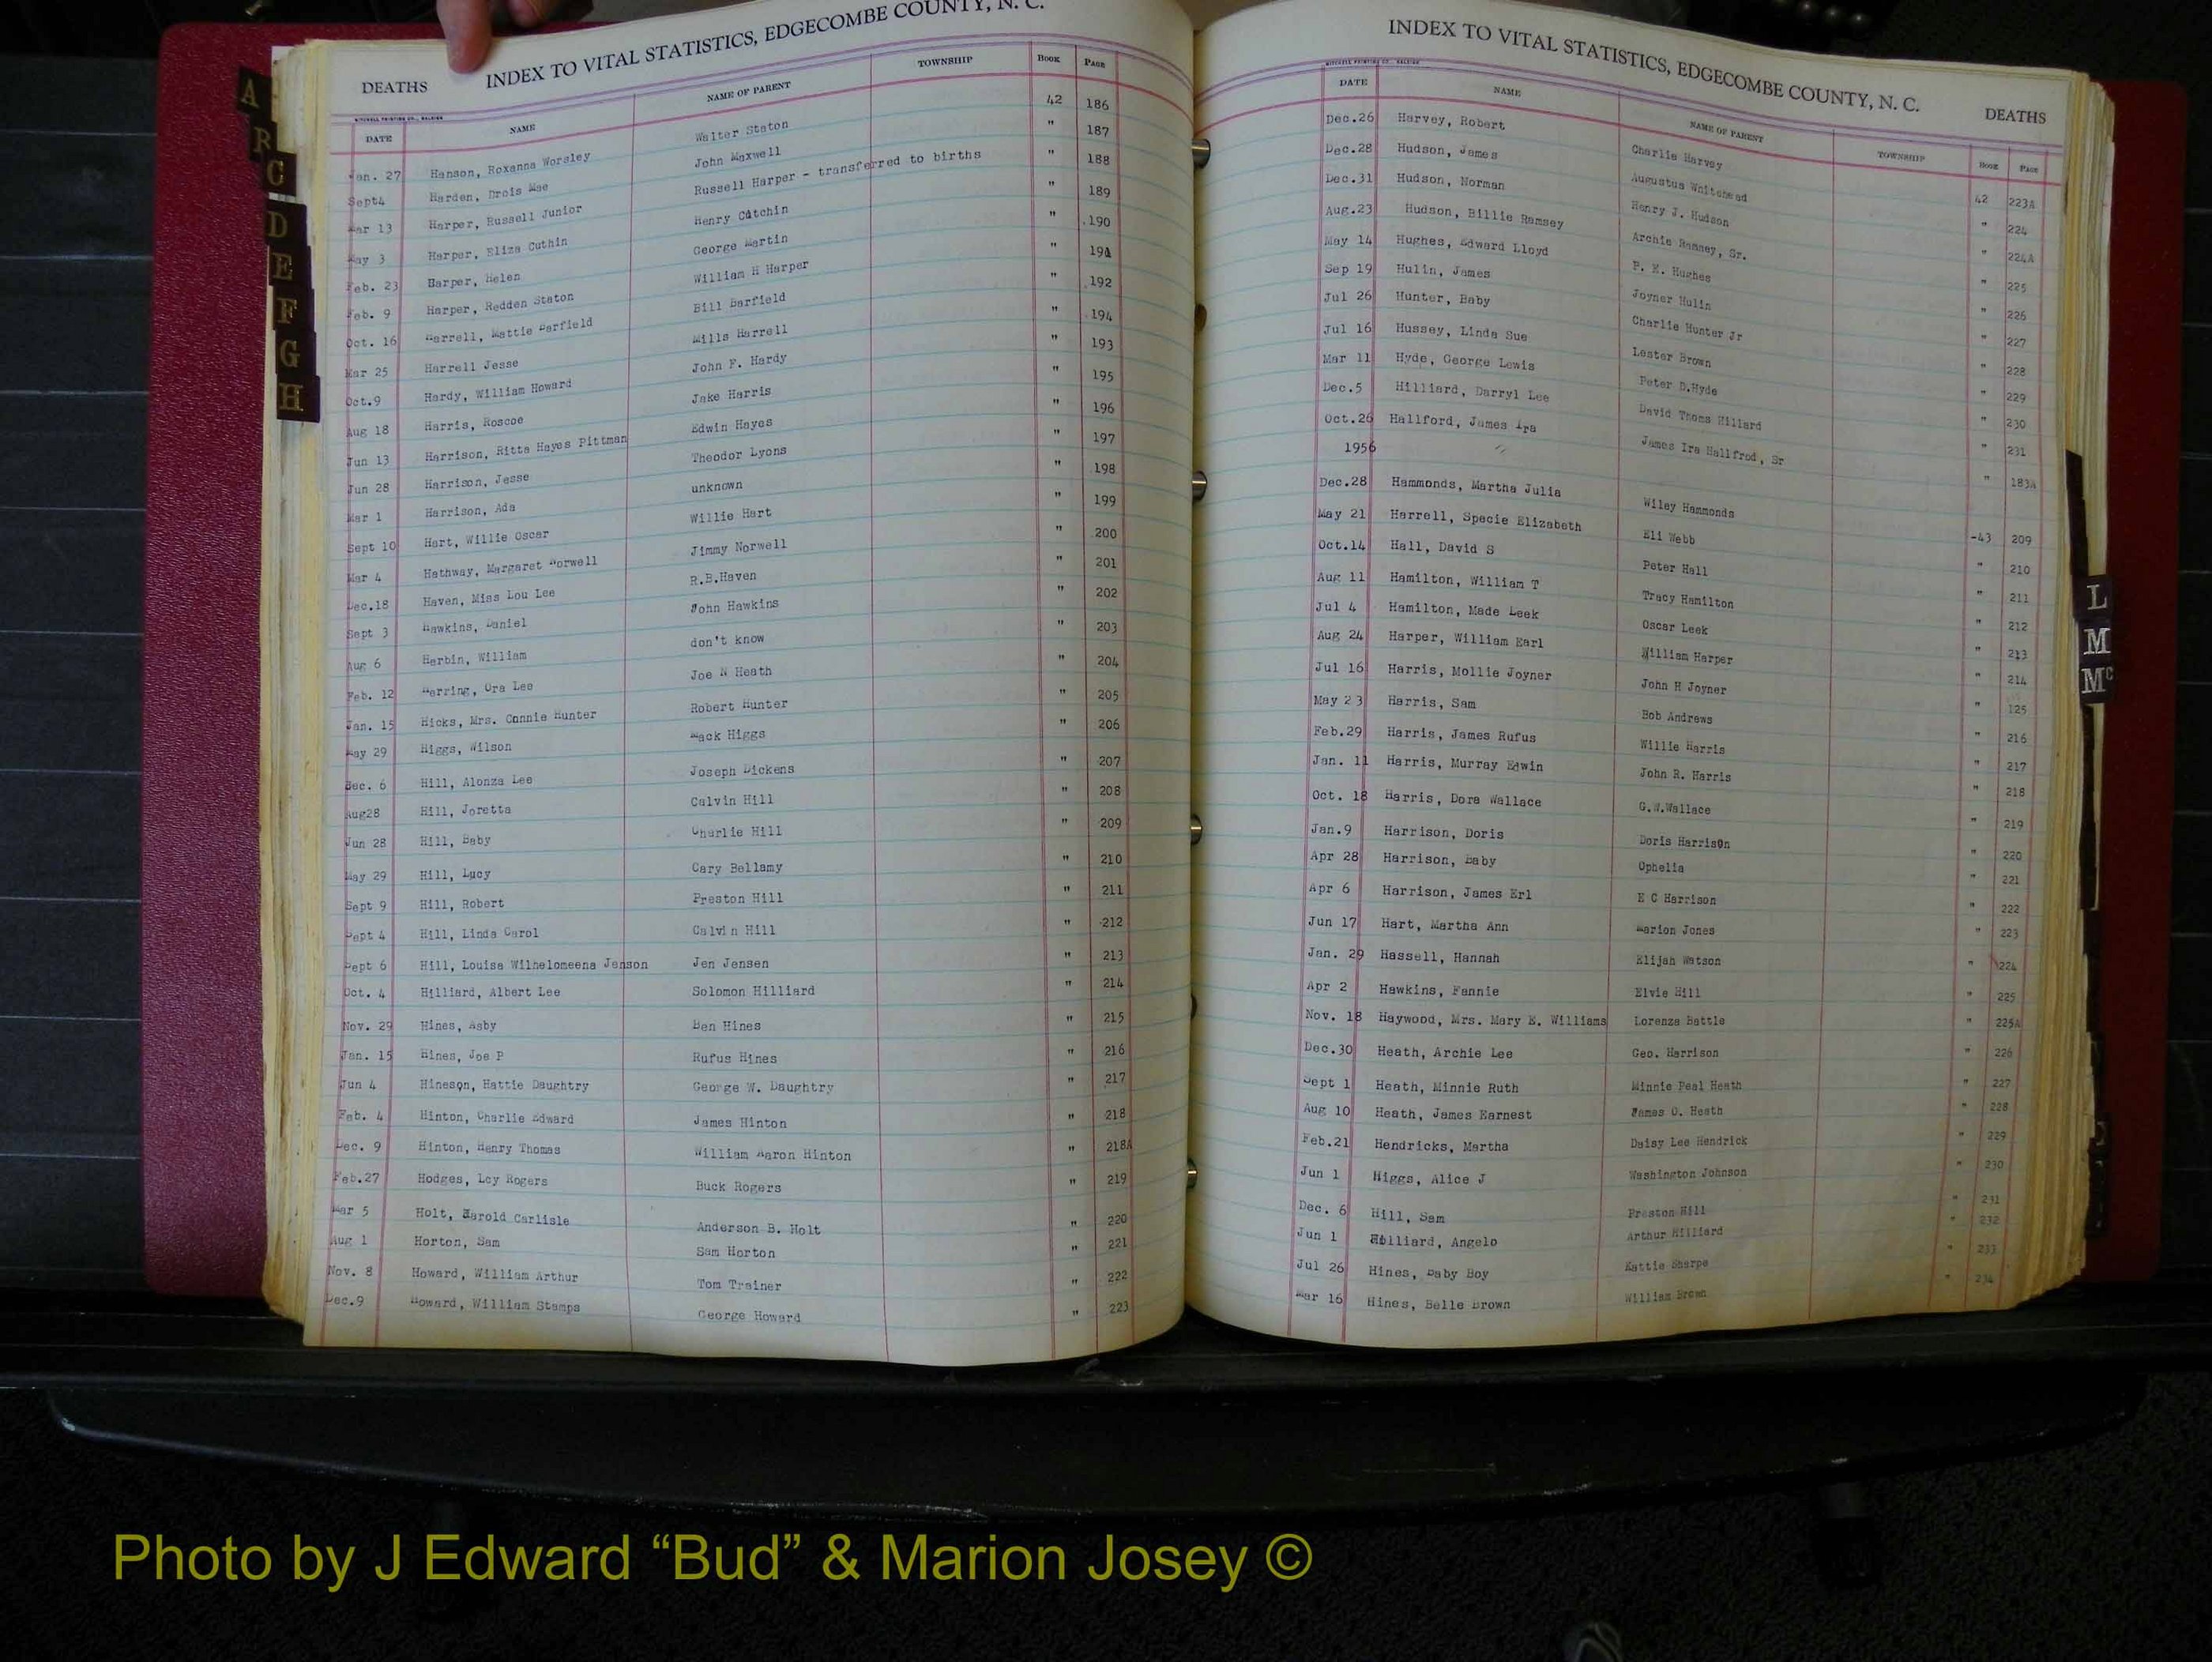 INDEX TO VITAL STATISTICS, EDGECOMBE COUNTY, N. C.
DEATHS
MITCHELL PRINTING CO., RALEIGH
DATE NAME NAME OF PARENT TOWNSHIP BOOK PAGE
Jan. 27 Hanson, Roxanna Worsley Walter Staton 42 186
Sept4 Harden, Drois Mae John Maxwell " 187
Mar 13 Harper, Russell Junior Russell Harper - transferred to births " 188
May 3 Harper, Eliza Cuthin Henry Catchin " 189
Feb. 23 Harper, Helen George Martin " 190
Feb. 9 Harper, Redden Staton William H Harper " 191
Oct. 16 Harrell, Mattie Barfield Bill Barfield " 192
Mar 25 Harrell Jesse Mills Harrell " 194
Oct.9 Hardy, William Howard John F. Hardy " 193
Aug 18 Harris, Roscoe Jake Harris " 195
Jun 13 Harrison, Ritta Hayes Pittman Edwin Hayes " 196
Jun 28 Harrison, Jesse Theodor Lyons " 197
Mar 1 Harrison, Ada unknown " 198
Sept 10 Hart, Willie Oscar Willie Hart " 199
Mar 4 Hathway, Margaret Norwell Jimmy Norwell " 200
Dec.18 Haven, Miss Lou Lee R.B.Haven " 201
Sept 3 Hawkins, Daniel John Hawkins " 202
Aug 6 Herbin, William don't know " 203
Feb. 12 Herring, Ora Lee Joe N Heath " 204
Jan. 15 Hicks, Mrs. Connie Hunter Robert Hunter " 205
May 29 Higgs, Wilson Mack Higgs " 206
Dec. 6 Hill, Alonza Lee Joseph Dickens " 207
Aug28 Hill, Joretta Calvin Hill " 208
Jun 28 Hill, Baby Charlie Hill " 209
May 29 Hill, Lucy Cary Bellamy " 210
Sept 9 Hill, Robert Preston Hill " 211
Sept 4 Hill, Linda Carol Calvin Hill " 212
Sept 6 Hill, Louisa Wilhelomeena Jenson Jen Jensen " 213
Oct. 4 Hilliard, Albert Lee Solomon Hilliard " 214
Nov. 29 Hines, Asby Ben Hines " 215
Jan. 15 Hines, Joe P Rufus Hines " 216
Jun 4 Hineson, Hattie Daughtry George W. Daughtry " 217
Feb. 4 Hinton, Charlie Edward James Hinton " 218
Dec. 9 Hinton, Henry Thomas William Aaron Hinton " 218A
Feb.27 Hodges, Loy Rogers Buck Rogers " 219
Mar 5 Holt, Harold Carlisle Anderson B. Holt " 220
Aug 1 Horton, Sam Sam Horton " 221
Nov. 8 Howard, William Arthur Tom Trainer " 222
Dec.9 Howard, William Stamps George Howard " 223
A
B
C
D
E
F
G
H
INDEX TO VITAL STATISTICS, EDGECOMBE COUNTY, N. C.
DEATHS
MITCHELL PRINTING CO., RALEIGH
DATE NAME NAME OF PARENT TOWNSHIP BOOK PAGE
Dec.26 Harvey, Robert Charlie Harvey 42 223A
Dec.28 Hudson, James Augustus Whitehead " 224
Dec.31 Hudson, Norman Henry J. Hudson " 224A
Aug.23 Hudson, Billie Ramsey Archie Ramsey, Sr. " 225
May 14 Hughes, Edward Lloyd P. E. Hughes " 226
Sep 19 Hulin, James Joyner Hulin " 227
Jul 26 Hunter, Baby Charlie Hunter Jr " 228
Jul 16 Hussey, Linda Sue Lester Brown " 229
Mar 11 Hyde, George Lewis Peter D.Hyde " 230
Dec.5 Hilliard, Darryl Lee David Thoms Hillard " 231
Oct.26 Hallford, James Ira James Ira Hallfrod, Sr " 183A
1956
Dec.28 Hammonds, Martha Julia Wiley Hammonds -43 209
May 21 Harrell, Specie Elizabeth Eli Webb " 210
Oct.14 Hall, David S Peter Hall " 211
Aug 11 Hamilton, William T Tracy Hamilton " 212
Jul 4 Hamilton, Made Leek Oscar Leek " 213
Aug 24 Harper, William Earl William Harper " 214
Jul 16 Harris, Mollie Joyner John H Joyner " 125
May 23 Harris, Sam Bob Andrews " 216
Feb.29 Harris, James Rufus Willie Harris " 217
Jan. 11 Harris, Murray Edwin John R. Harris " 218
Oct. 18 Harris, Dora Wallace G.W.Wallace " 219
Jan.9 Harrison, Doris Doris Harrison " 220
Apr 28 Harrison, Baby Ophelia " 221
Apr 6 Harrison, James Erl E C Harrison " 222
Jun 17 Hart, Martha Ann Marion Jones " 223
Jan. 29 Hassell, Hannah Elijah Watson " 224
Apr 2 Hawkins, Fannie Elvie Hill " 225
Nov. 18 Haywood, Mrs. Mary E. Williams Lorenza Battle " 225A
Dec.30 Heath, Archie Lee Geo. Harrison " 226
Sept 1 Heath, Minnie Ruth Minnie Peal Heath " 227
Aug 10 Heath, James Earnest James O. Heath " 228
Feb.21 Hendricks, Martha Daisy Lee Hendrick " 229
Jun 1 Higgs, Alice J Washington Johnson " 230
Dec. 6 Hill, Sam Preston Hill " 231
Jun 1 Hilliard, Angelo Arthur Hilliard " 232
Jul 26 Hines, Baby Boy Hattie Sharpe " 233
Mar 16 Hines, Belle Brown William Brown " 234
L
M
Mc
Photo by J Edward “Bud” & Marion Josey ©